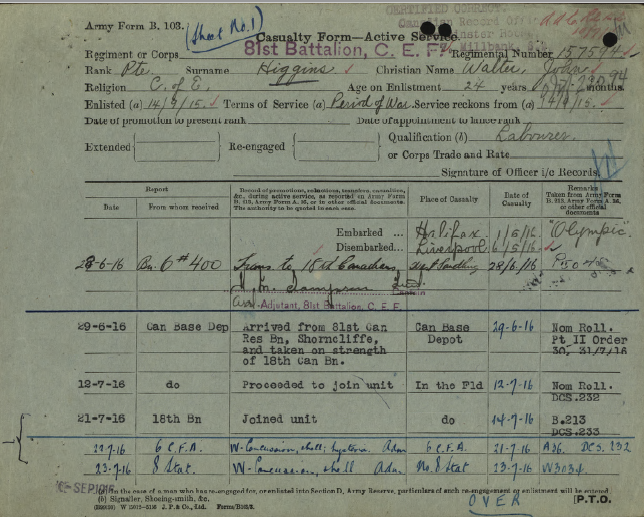 Army Form B. 103.
(Sheet No. 1)
CERTIFIED
Casualty Form—Active Service.
Regiment or Corps 81st Battalion, C. E. F. Regimental Number 157594
Rank Pte. Surname Higgins Christian Name Walter John
Religion C. of E. Age on Enlistment 24 years months.
Enlisted (a) 14/9/15. Terms of Service (a) Period of War Service reckons from (a) 14/9/15.
Date of promotion to present rank Date of appointment to lance rank
Extended Re-engaged Qualification (b) Labourer
or Corps Trade and Rate
Signature of Officer i/c Records.
Report
Date From whom received
Record of promotions, reductions, transfers, casualties, &c., during active service, as reported on Army Form B. 213, Army Form A. 36, or in other official documents. The authority to be quoted in each case.
Place of Casualty
Date of Casualty
Remarks
Taken from Army Form B. 213, Army Form A. 36, or other official documents
Embarked ... Halifax 1/5/16 "Olympic"
Disembarked... Liverpool 6/5/16
28-6-16 Bn. O # 400 Trans to 18th Canadians, Sandling 28/6/16
Adjutant, 81st Battalion, C. E. F.
29-6-16 Can Base Dep Arrived from 81st Can Res Bn, Shorncliffe, and taken on strength of 18th Can Bn. Can Base Depot 29-6-16 Nom Roll. Pt II Order 30, 31/7/16
12-7-16 do Proceeded to join unit In the Fld 12-7-16 Nom Roll. DCS.232
21-7-16 18th Bn Joined unit do 14-7-16 B.213 DCS.233
22-7-16 6 C.F.A. W-Concussion, shell; hysteria. Adm 6 C.F.A. 21-7-16 A36. DCS. 232
23-7-16 8 Stat. W-Concussion, shell Adm. No. 8 Stat 23-7-16 W3034.
SEP 1916
(a) In the case of a man who has re-engaged for, or enlisted into Section D, Army Reserve, particulars of such re-engagement or enlistment will be entered.
(b) Signaller, Shoeing-smith, &c.
J. P. & Co., Ltd. Forms/B103/3.
OVER
[P.T.O.